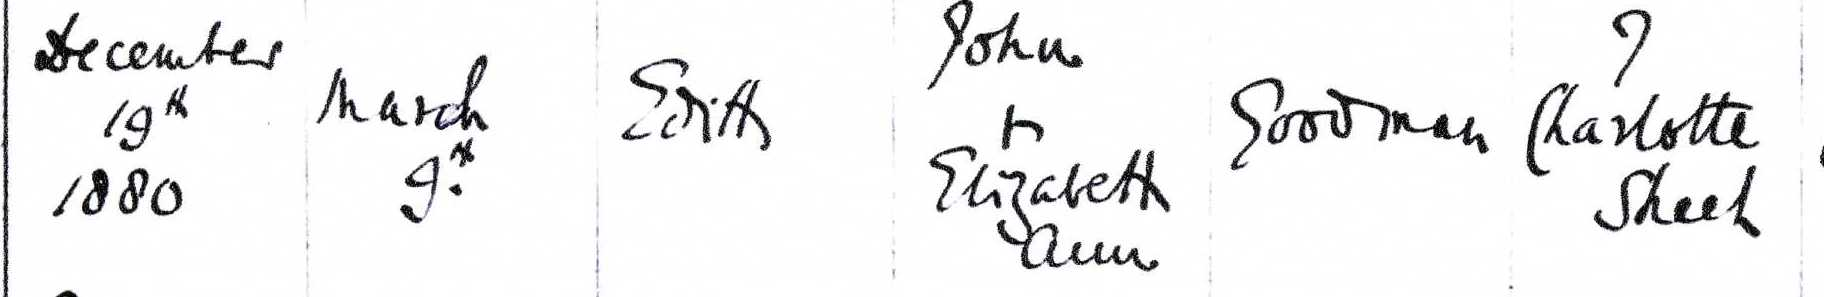 December
19th
1880
March
9th
Edith
John
&
Elizabeth
Ann
Goodman
?
Charlotte
Street